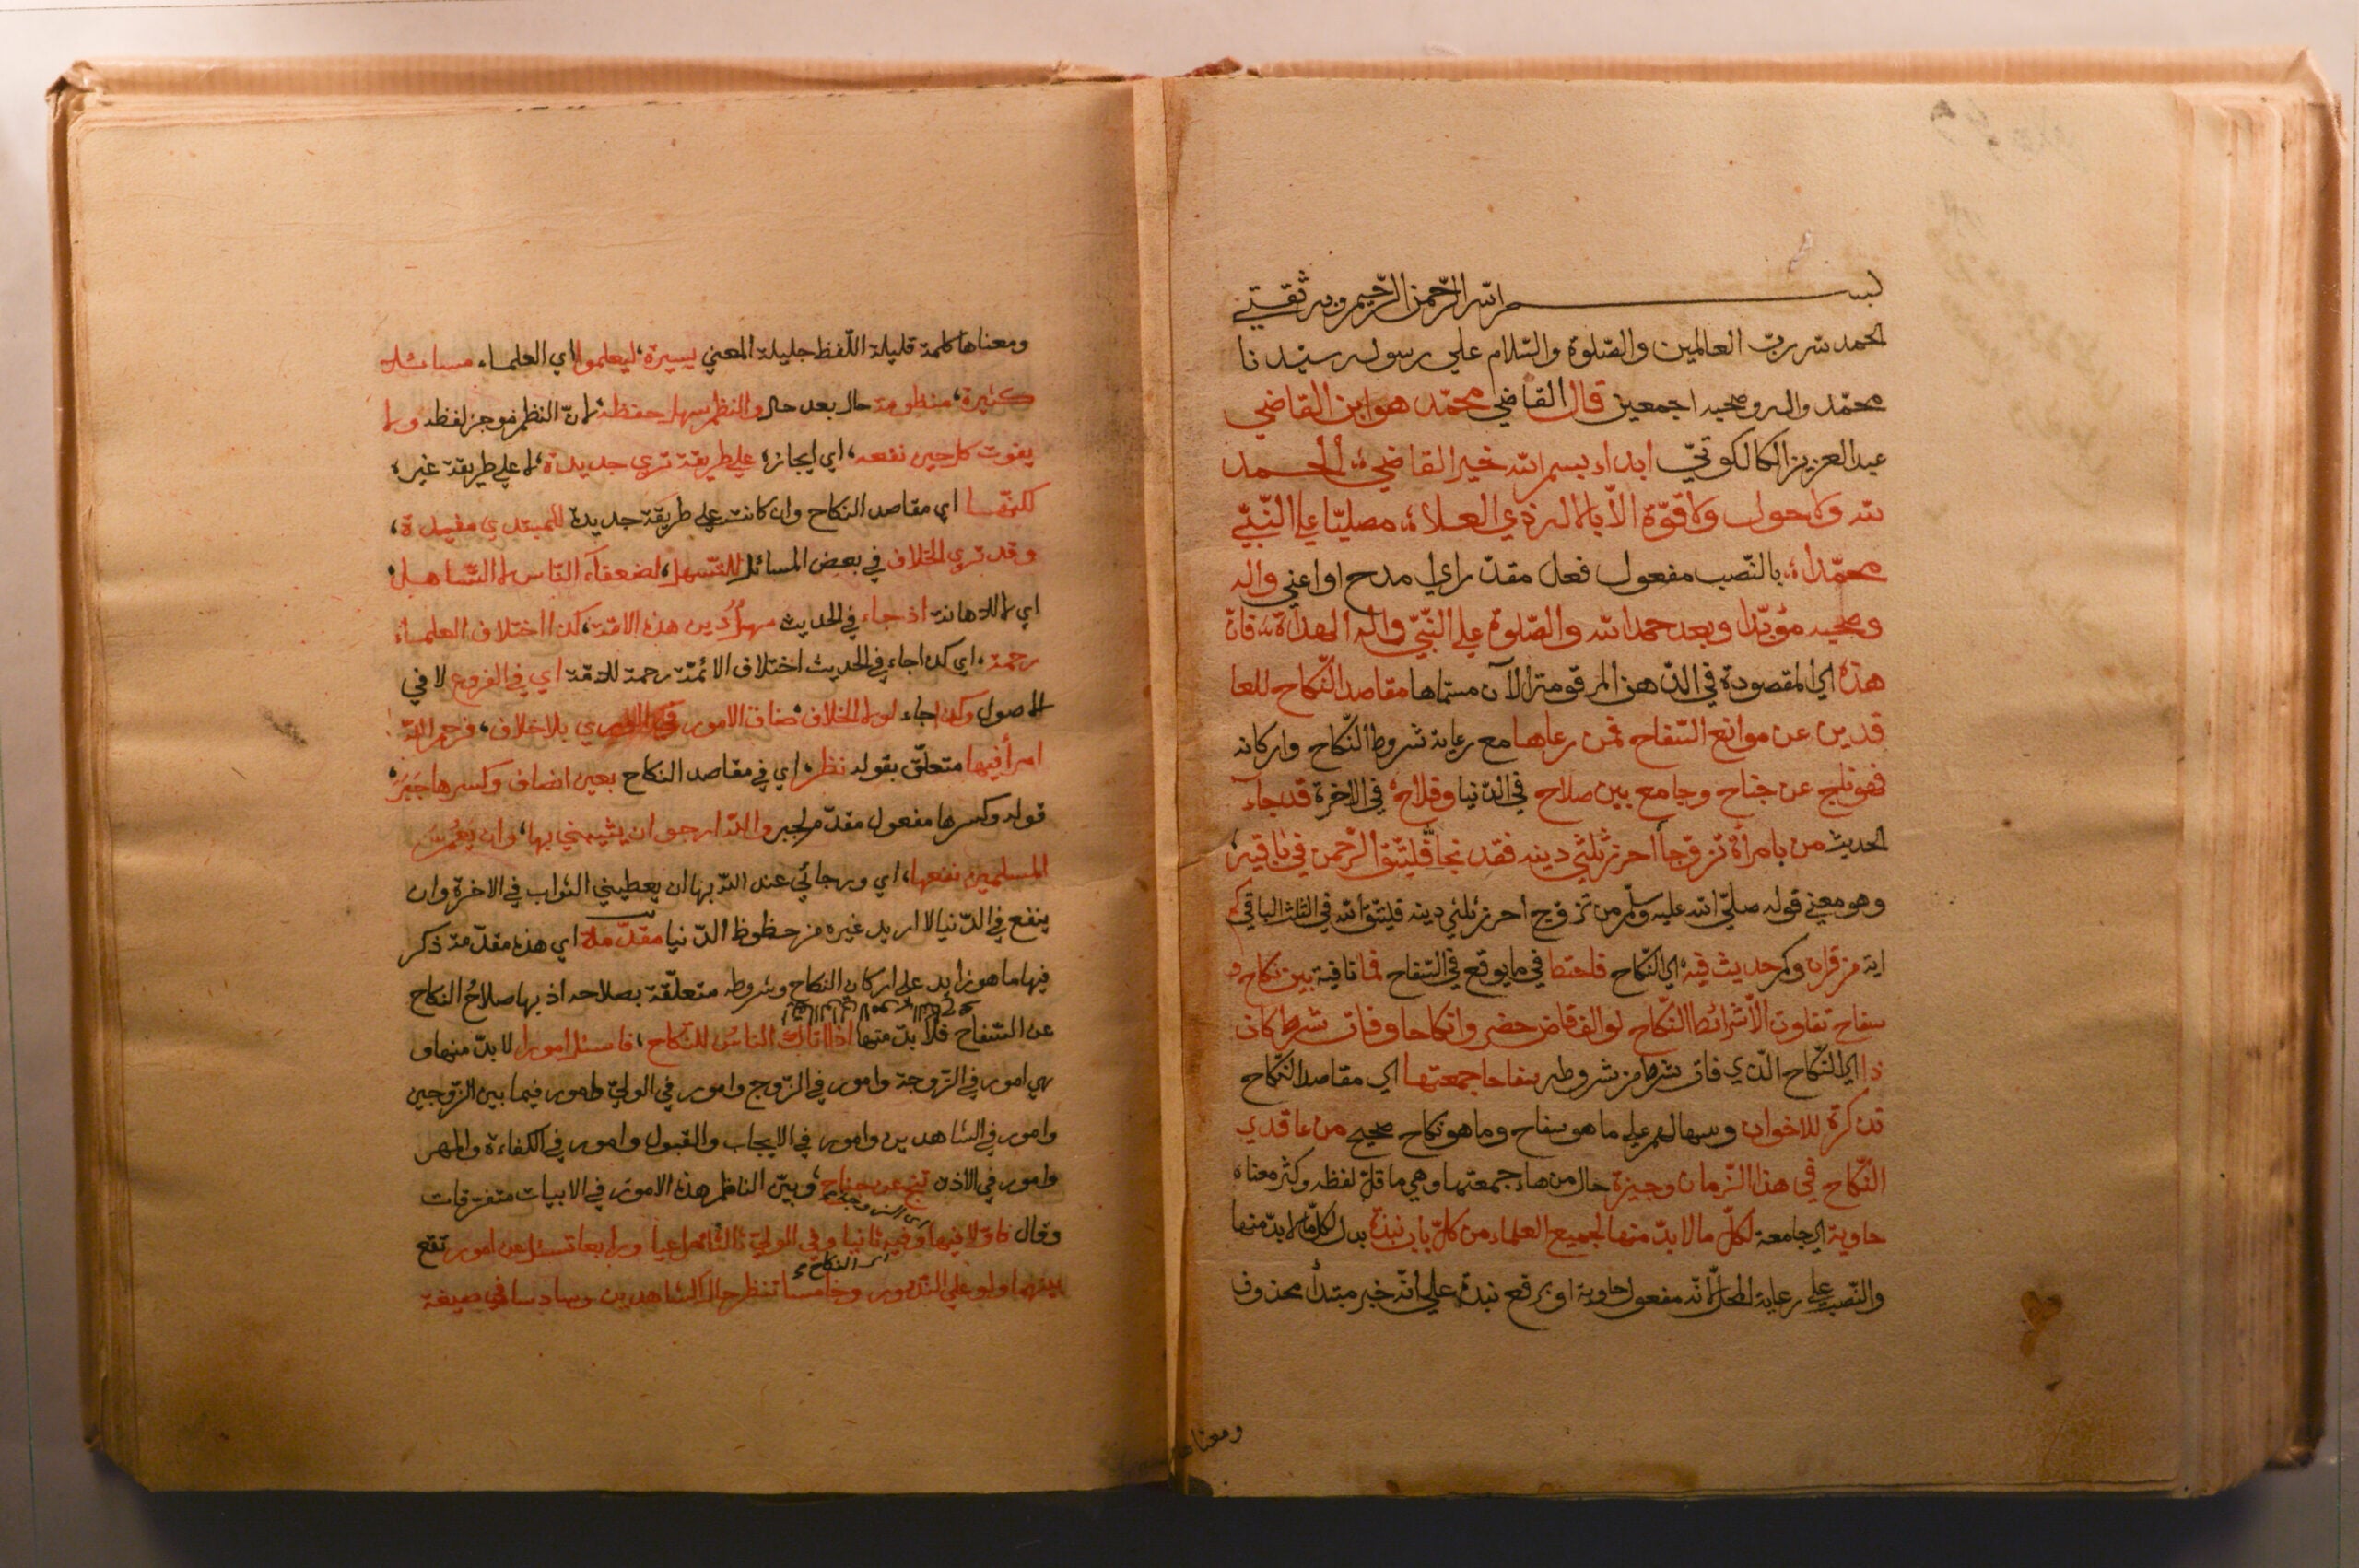 بسم الله الرحمن الرحيم وبه ثقتي
الحمد لله ربّ العالمين والصّلوة والسّلام على رسوله سيّدنا
محمّد واله وصحبه اجمعين قال القاضي محمّد هو ابن القاضي
عبد العزيز الكالكوتيّ ابداء بسم الله خير القاضي، الحمد
لله ولا حول ولا قوّة الّا بالاله ذي العلاء، مصليّا على النّبيّ
محمّدا، بالنّصب مفعول فعل مقدّر اي امدح او اعني واله
وصحبه مؤبّدا وبعد حمد الله والصّلوة على النّبيّ واله الهداة، فانّ
هذه اي المقصودة في الذّهن المرقومة الآن مسمّاها مقاصد النّكاح للعا
قدين عن موانع السّفاح فمن رعاها مع رعاية شروط النّكاح واركانه
فهو فلج عن جناح وجامع بين صلاح في الدّنيا وفلاح، في الاخرة قد جآء
الحديث من بامرأة تزوّجا أحرز ثلثي دينه فقد نجا فليتّق الرّحمن في باقيه،
وهو معني قوله صلّي الله عليه وسلّم من تزوّج احرز ثلثي دينه فليتّق الله في الثلث الباقي كم
اية من قران وكم حديث فيه، اي النّكاح فاحتط في ما يوقع في السّفاح فما نافية بين نكاح و
سفاح تفاوت الّا شرائط النّكاح لو الف قاض حضروا نكاحا وفات شرط كان
ذا اي النّكاح الّذي فات شرط من شروطه سفاحا جمعتها اي مقاصد النّكاح
تذكرة للاخوان وسهال لهم على ما هو سفاح وما هو نكاح صحيح من عاقدي
النّكاح في هذا الزّمان وجيزة حال من هاء جمعتها وهي ما قلّ لفظه وكثر معناه
حاوية اي جامعة لكلّ ما لا بدّ منها لجميع العلماء من كلّ باب نبذة بدل لكلّ ما لا بدّ منها
والنّصب على رعاية المحلّ لانّه مفعول حاوية او برفع نبذة على انّه خبر مبتدأ محذوف
ومعناها
ومعناها كلمة قليلة اللّفظ جليلة المعني يسيرة، ليعلموا اي العلماء مسائلا
كثيرة، منظومة حال بعد حال والنظم سهل حفظه، لانّ النظم موجز لفظه ولا
يفوت كل حين نفعه، اي ايجازه على طريقة تري جديدة، لا على طريقة غيره
لكنّها اي مقاصد النكاح وان كانت على طريقة جديدة للمبتدي مفيدة،
وقد تري الخلاف في بعض المسائل للتّسهل، لضعفآء النّاس لا التّساهل،
اي لا للاهانة اذ جاء في الحديث سهلٌ دين هذه الامّة، كذا اختلاف العلماء
رحمة، اي كذا جاء في الحديث اختلاف الائمّة رحمة للامّة اي في الفروع لا في
الاصول وكذا جاء لو لا الخلاف ضاق الامور بلا خلاف، فرحم اللّه
امرأ فيها متعلّق بقوله نظر، اي في مقاصد النكاح بعين انصاف وكسرها جَبَرَ،
قوله وكسرها مفعول مقدّم لجبر واللّه ارجو ان يثيبني بها، وان يَعُمَّ
المسلمين نفعها، اي ورجائي عند اللّه بها ان يعطيني الثواب في الاخرة وان
ينفع في الدّنيا لا اريد غيره من حظوظ الدّنيا مقدّمة اي هذه مقدّمة ذكر
فيها ما هو زايد على اركان النكاح وشروطه متعلّقة بصلاحه اذ بها صلاح النكاح
عن السّفاح فلا بدّ منها اذا اتاك الناس للنّكاح، فاسئل امورا لا بدّ منها و
هي امور في الزّوجة وامور في الزّوج وامور في الوليّ وامور فيما بين الزّوجين
وامور في الشاهدين وامور في الايجاب والقبول وامور في الكفاءة والمهر
وامور في الاذن تنج عن جناح، وبيّن الناظم هذه الامور في الابيات متفرقات
وقال فاوّلا فيها وفيه ثانيا وفي الوليّ ثالثا ورابعا تسئل من امور تقع
اي النكاح
بينهما ولو على النّدور، وخامسا تنظر حال الشاهدين وسادسا في صيغة